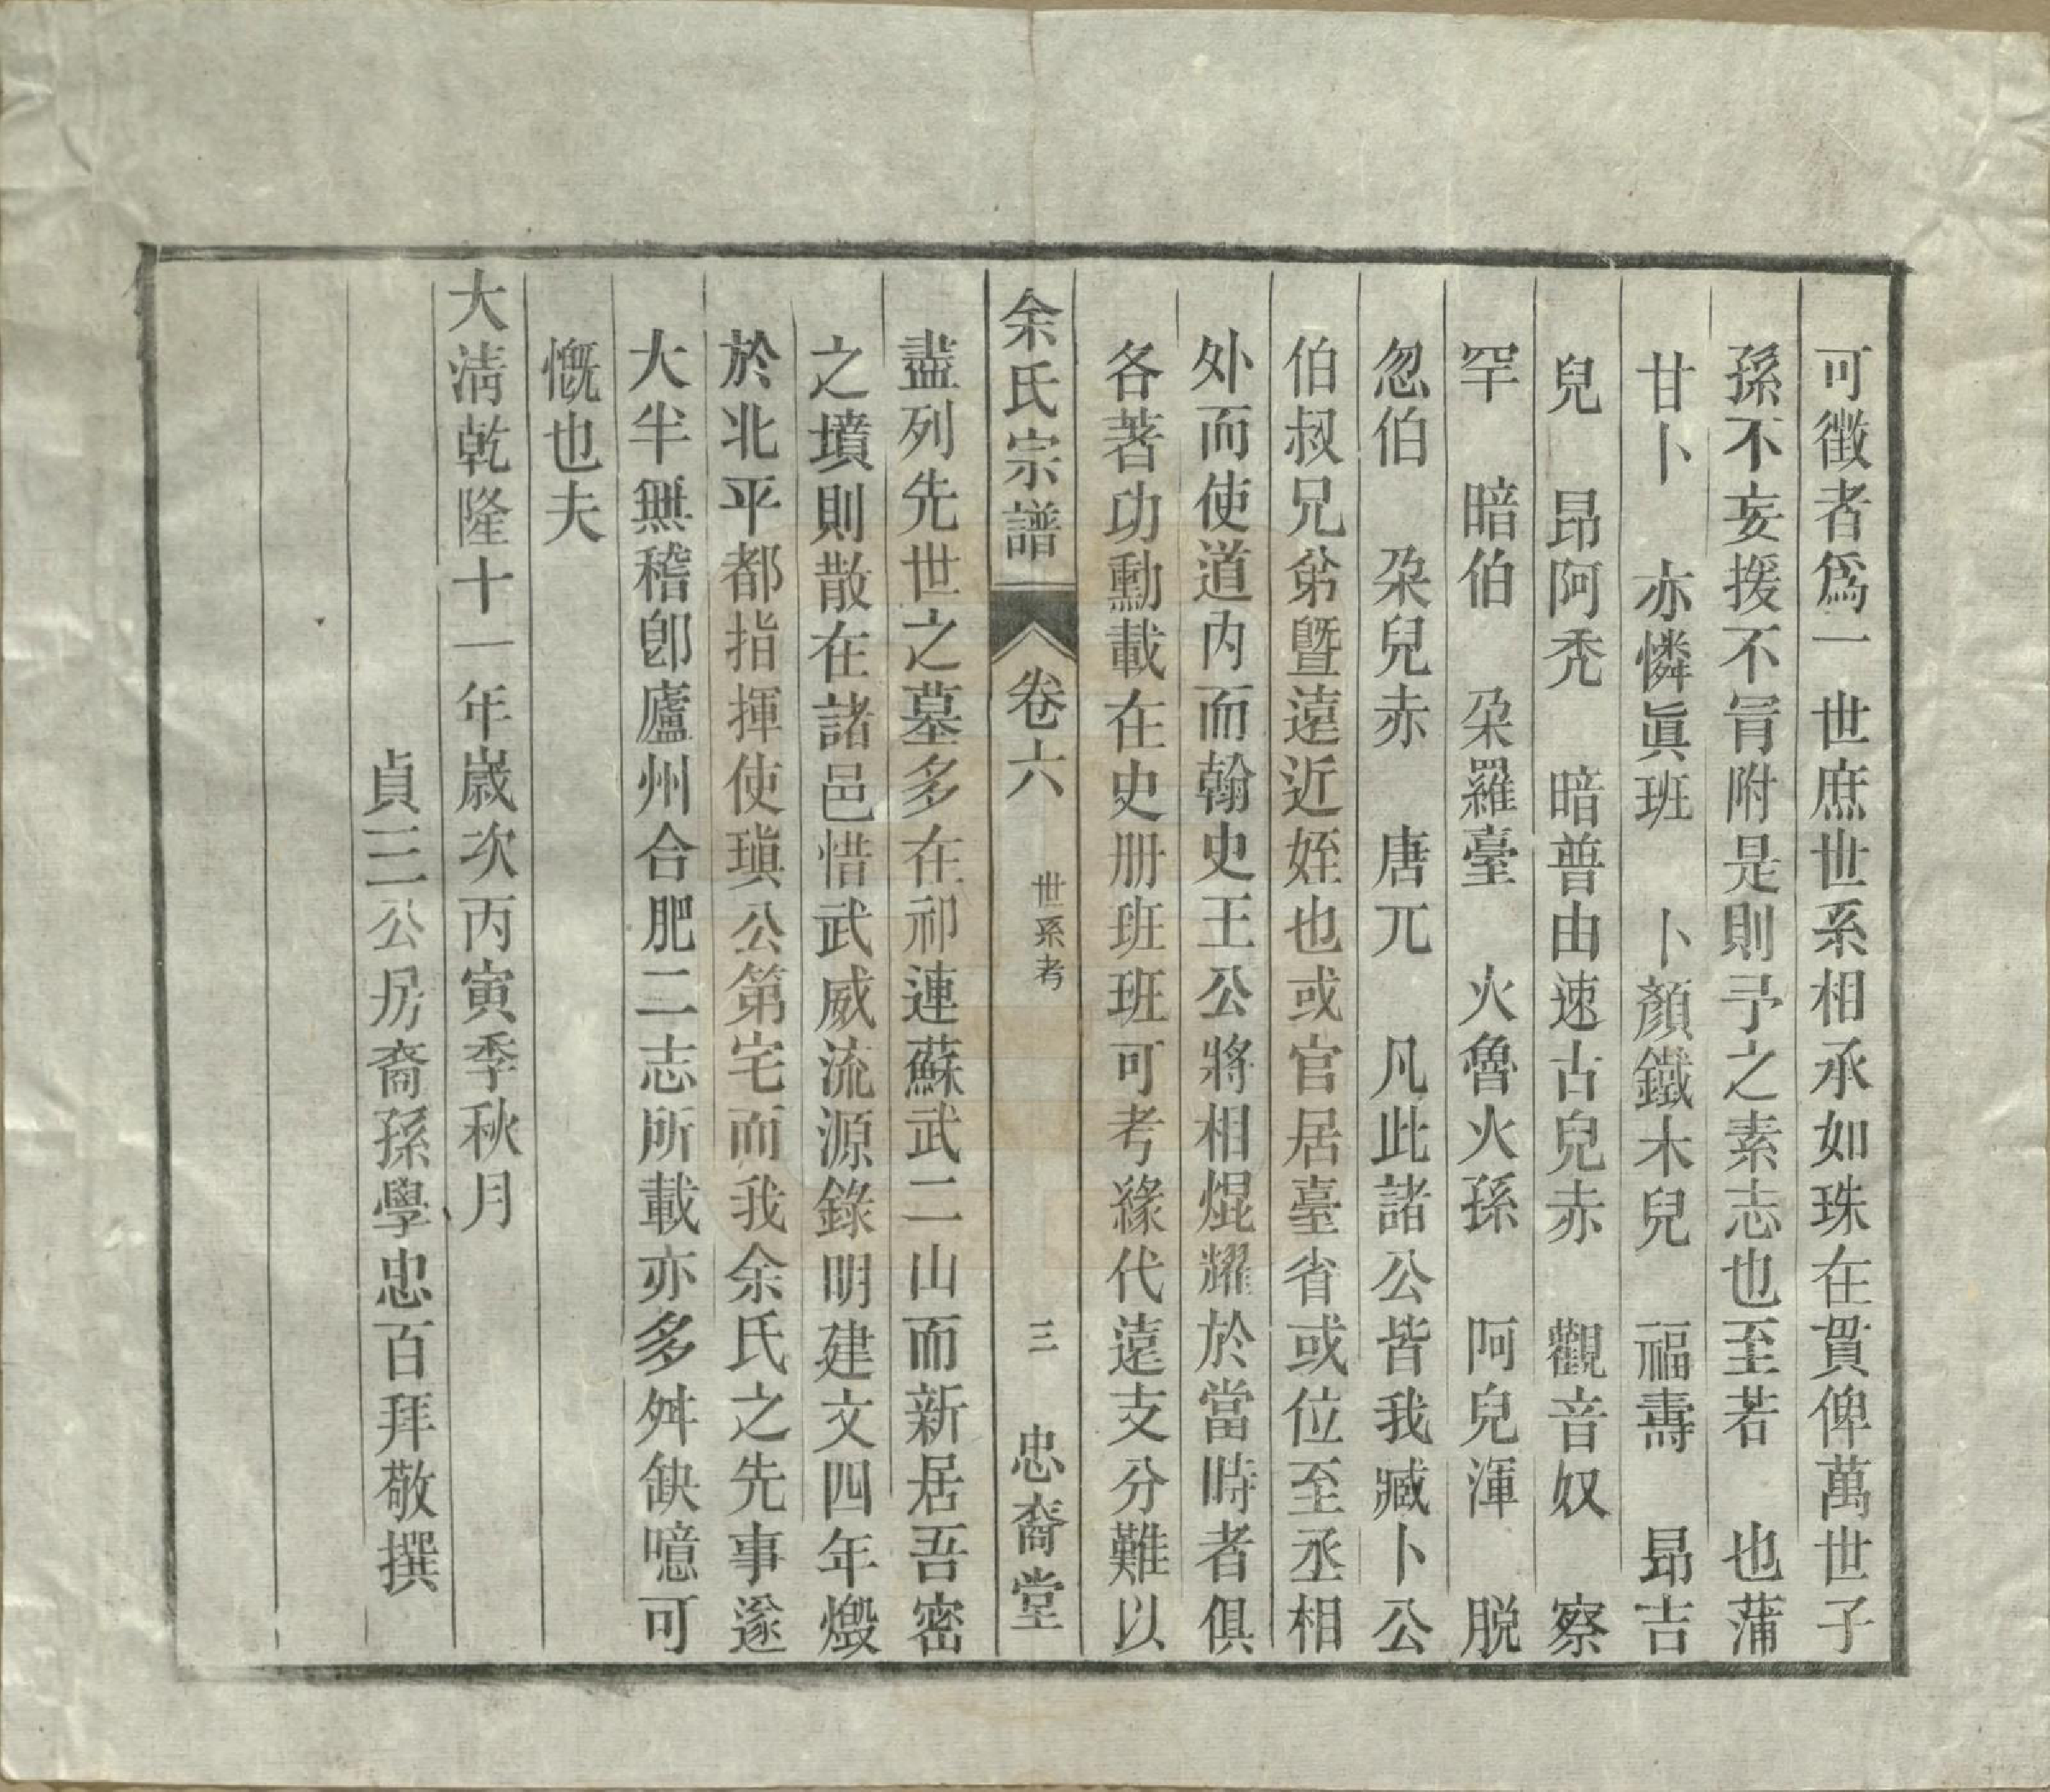 可徵者爲一世庶世系相承如珠在貫俾萬世子
孫不妄援不冐附是則予之素志也至若　也蒲
甘卜　亦憐眞班　卜顏鐵木兒　福壽　昻吉
兒　昂阿禿　暗普由速古兒赤　觀音奴　察
罕　暗伯　朶羅臺　火魯火孫　阿兒渾　脱
忽伯　朶兒赤　唐兀　凡此諸公皆我臧卜公
伯叔兄弟曁遠近姪也或官居臺省或位至丞相
外而使道内而翰史王公將相焜耀於當時者俱
各著功勳載在史册班班可考緣代遠支分難以
余氏宗譜　卷六　世系考　三　忠裔堂
盡列先世之墓多在祁連蘇武二山而新居吾密
之墳則散在諸邑惜武威流源錄明建文四年燬
於北平都指揮使瑱公第宅而我余氏之先事遂
大半無稽卽廬州合肥二志所載亦多舛缺噫可
慨也夫
大淸乾隆十一年歲次丙寅季秋月
貞三公房裔孫學忠百拜敬撰